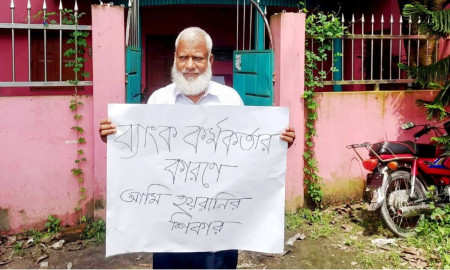 ব্যাংক কর্মকর্তার
কারণে
আমি হয়রানির
শিকার